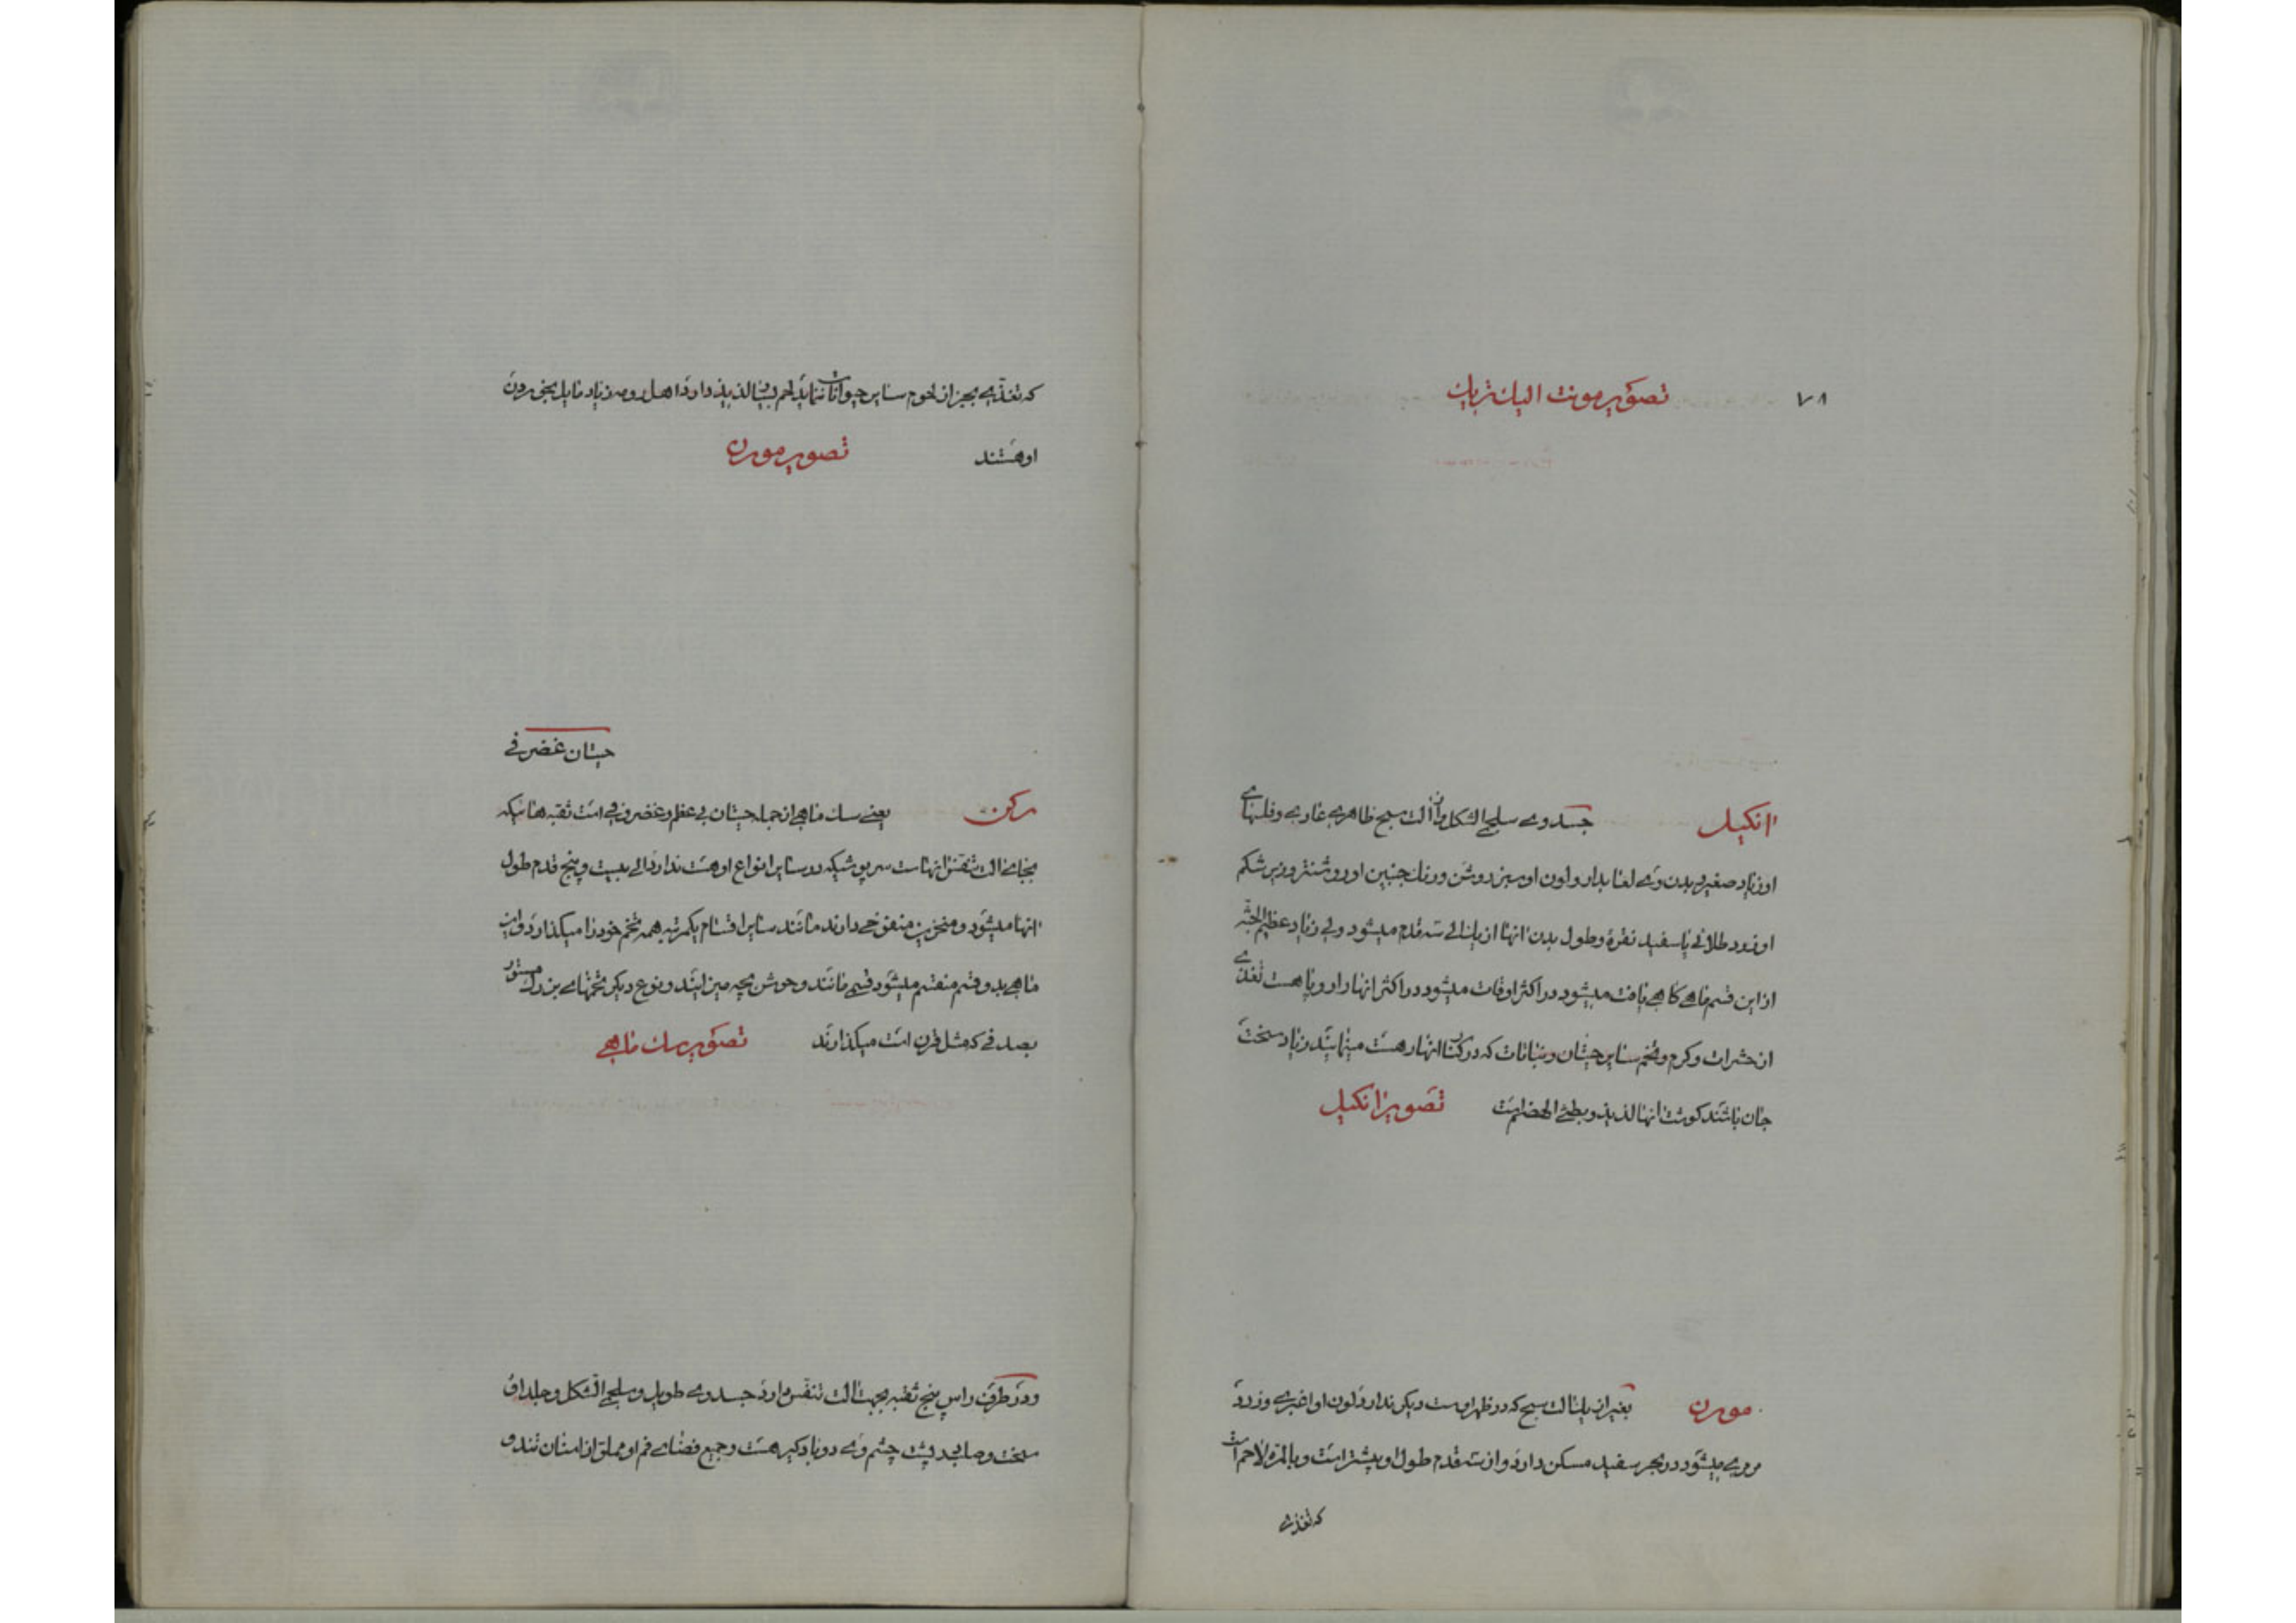 ۷۸
تصویر مونت الیك تریك
انکیل جسد وے سلجے الشکل وآن آلت سبح ظاهرے عارے وفلسهاے
او زیاد صغیر و بدن وے لعابدار و لون او سبز روشن و رنك جنبین او روشنتر و زیر شکم
او زرد طلائے یا سفید نقرهٔ و طول بدن انها از یك الے سه قدم میشود ولے زیاد عظیم الجثّه
از این قسم ماهے کاهے یافت میشود در اکثر اوقات میشود در اکثر انهار اروپا هست تغذّے
از حشرات و کرم و تخم سایر حیتان و نباتات که در کنار انهار هست مینمایند زیاد سخت
جان باشند کوشت انها لذیذ و بطئ الهضم است تصویر انکیل
مورن بغیر از یك آلت سبح که در ظهر اوست دیکر ندارد لون او اغبرے و زرد
مرمرے میشود در بحر سفید مسکن دارد و از سه قدم طول او بیشتر است و بالمرّه لاحم است
که تغذے
که تغذّیه بجز از لحوم سایر حیوانات ننماید لحم بسیار لذیذ دارد اهل روم زیاد مایل بخوردن
او هستند تصویر مورن
حیتان غضرفے
رکن یعنے سك ماهے از جمله حیتان بے عظم و غضروفے است ثقبه هائیکه
بجاے آلت تنفّس انهاست سرپوشیکه در سایر انواع او هست ندارد الے بیست و پنج قدم طول
انها میشود و منخرین منفوخے دارند مانند سایر اقسام یکمرتبه همه تخم خود را میکذارد و این
ماهے بدو قسم منقسم میشود قسمے مانند وحوش بچه میزایند و نوع دیکر تخمهاے بزرك مستور
بصدفے که مثل قرن است میکذارند تصویر سك ماهے
و در طرفین راس پنج ثقبه بجهت آلت تنفّس دارد جسد وے طویل و سلجے الشکل و جلد او
سخت و صلب در پشت چشم وے دو باد کیر هست و جمیع فضاے فم او مملوّ از اسنان تند و